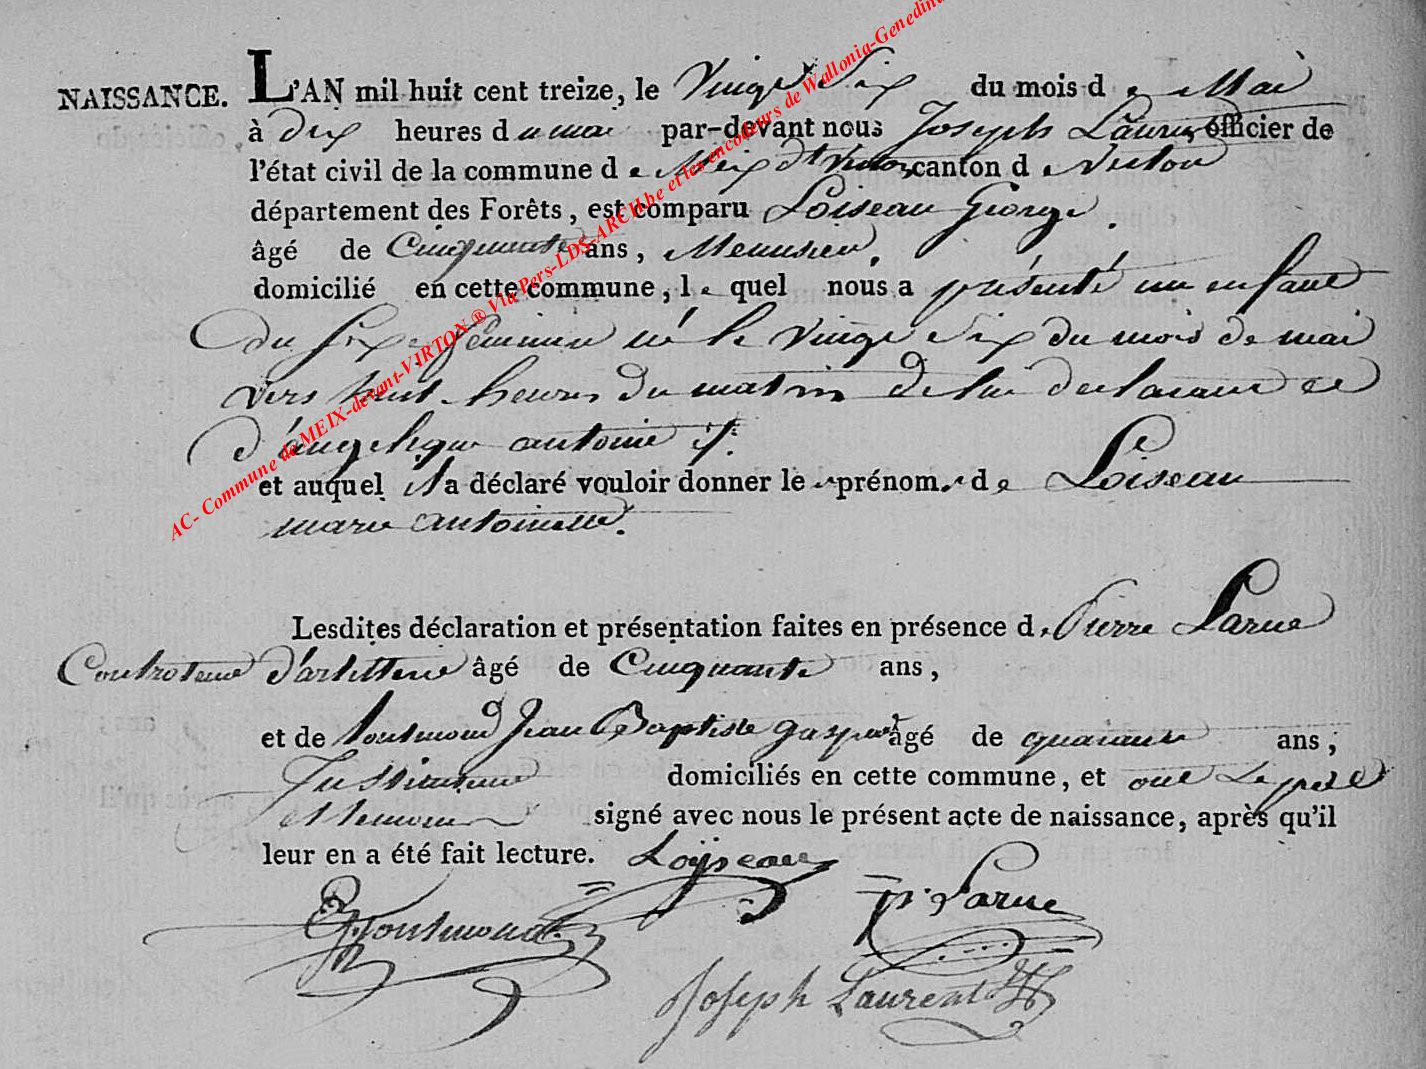 NAISSANCE. L'AN mil huit cent treize, le Vingt Six du mois de Mai
à dix heures du mat par-devant nous Joseph Laurent officier de
l'état civil de la commune de Meix dt Virton, canton de Virton
département des Forêts, est comparu Loiseau George
âgé de Cinquante ans, Menusier,
domicilié en cette commune, le quel nous a présenté un enfant
du sexe féminin né le vingt Six du mois de mai
vers huit heures du matin de lui declarant et
d'angelique antoine
et auquel il a déclaré vouloir donner le prénom de Loiseau
marie antoinette.
Lesdites déclaration et présentation faites en présence de Pierre Larue
d'artillerie âgé de Cinquante ans,
et de toutmond Jean Baptiste gaspard âgé de quarante ans,
domiciliés en cette commune, et ont Le pere
et temoins signé avec nous le présent acte de naissance, après qu'il
leur en a été fait lecture. Loÿseau
Toutmond P. Larue
Joseph Laurent
AC- Commune de MEIX-devant-VIRTON ® Via Pers-LDS-ARCH.be et les encodeurs de Wallonia-Genedina